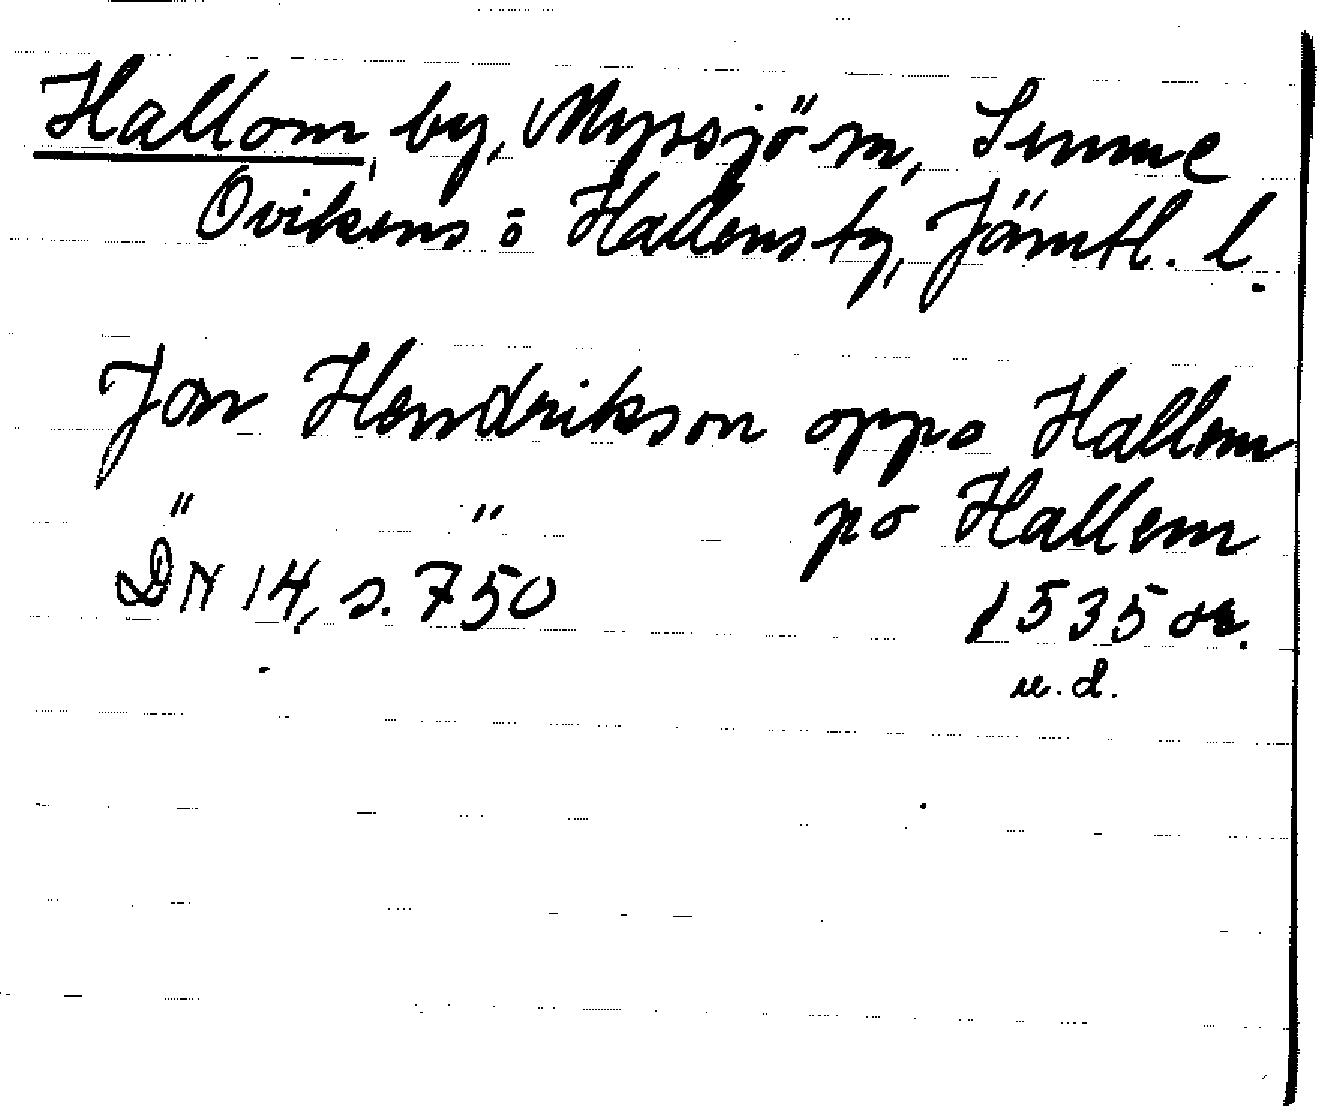 Hallom, by, Myssjö sn, Sunne
Ovikens o Hallens tg, Jämtl. l.
Jon Hendrikson oppo Hallem
" " po Hallem
DN 14, s. 750 1535 or.
u.d.